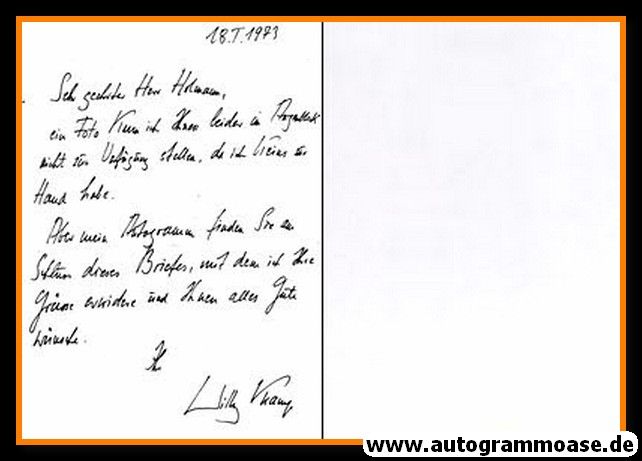 18.I.1973
Sehr geehrter Herr Hohmann,
ein Foto kann ich Ihnen leider im Augenblick
nicht zur Verfügung stellen, da ich keins zur
Hand habe.
Aber mein Autogramm finden Sie am
Schluss dieses Briefes, mit dem ich Ihre
Grüsse erwidere und Ihnen alles Gute
wünsche.
Ihr
Willy Kramp
www.autogrammoase.de